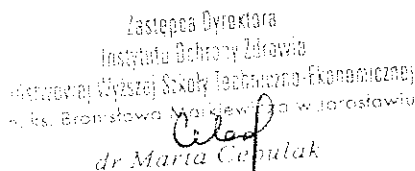 Zastępca Dyrektora
Instytutu Ochrony Zdrowia
Państwowej Wyższej Szkoły Techniczno-Ekonomicznej
im. ks. Bronisława Markiewicza w Jarosławiu
dr Marta Cebulak